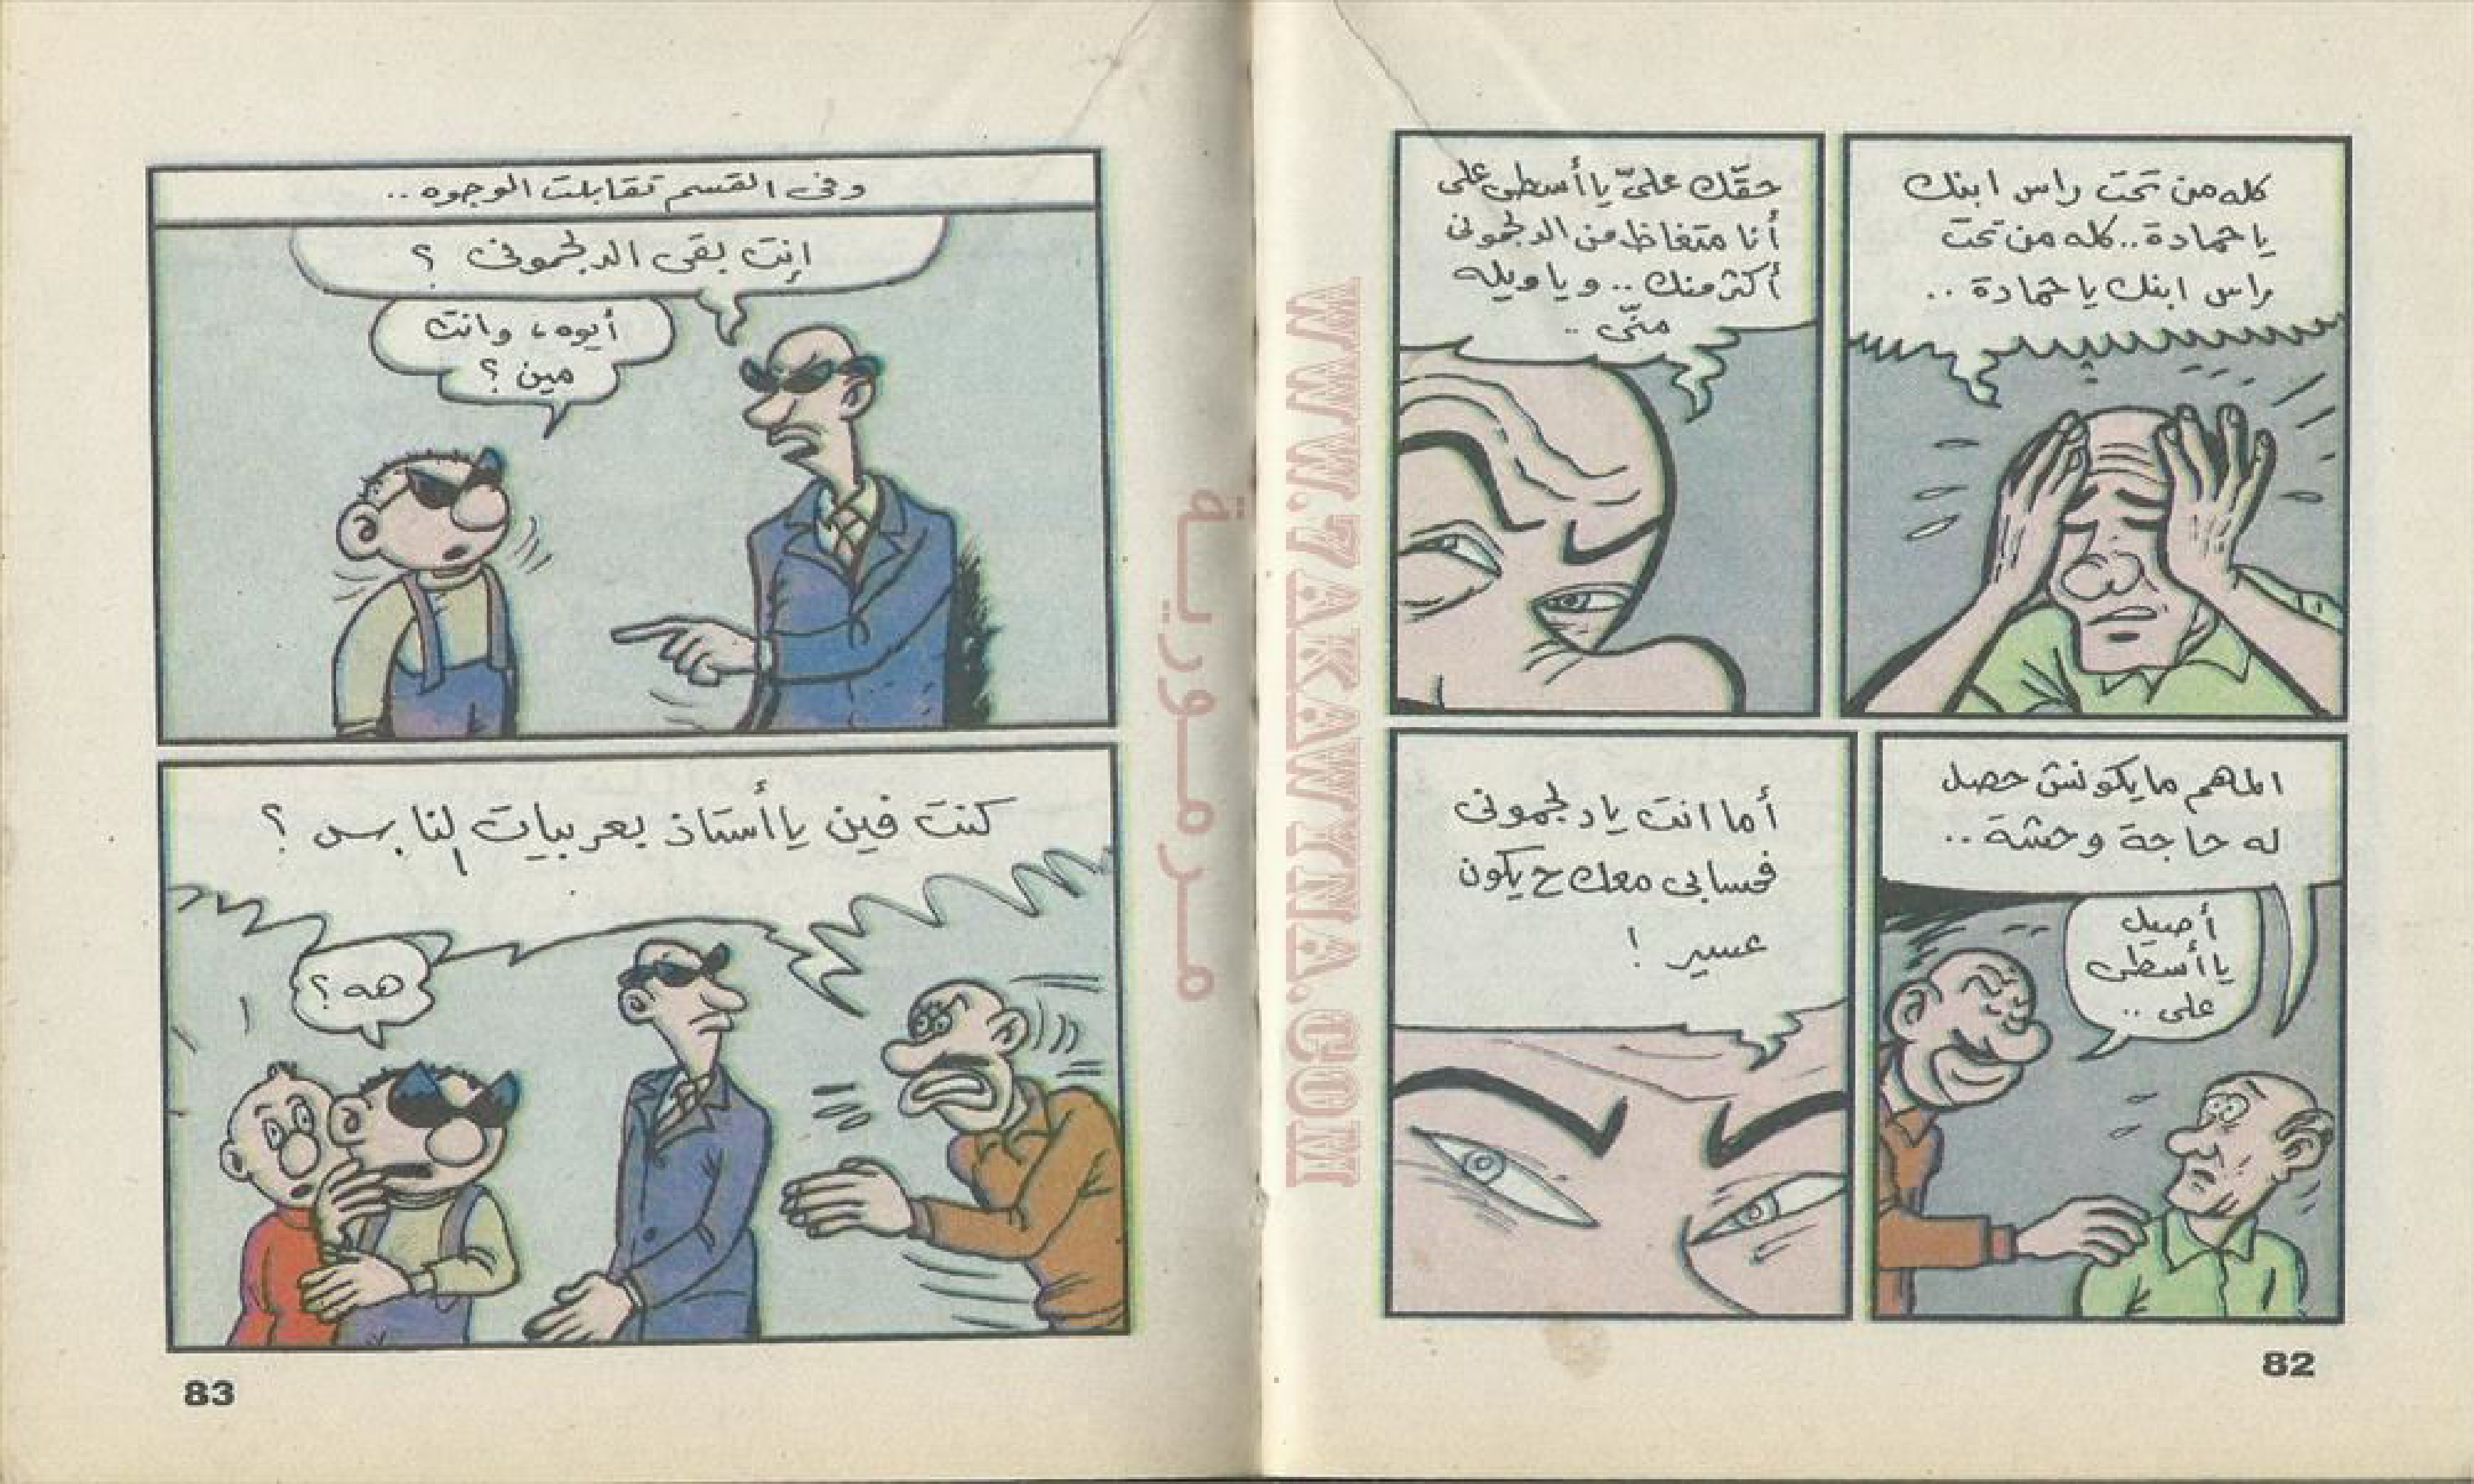 كله من تحت راس ابنك
يا حمادة.. كله من تحت
راس ابنك يا حمادة ..
حقّك عليّ يا أسطى على
أنا متغاظ من الدلجمونى
أكتر منك .. و يا ويله
منّى ..
المهم مايكونش حصل
له حاجة وحشة ..
أصيل
يا أسطى
على ..
أما انت يا دلجمونى
فحسابى معك ح يكون
عسير !
82
وفى القسم تقابلت الوجوه ..
إنت بقى الدلجمونى ؟
أيوه، وانت
مين ؟
كنت فين يا أستاذ بعربيات الناس ؟
هه ؟
83
مرمورية
WWW.7AKAWYNA.COM